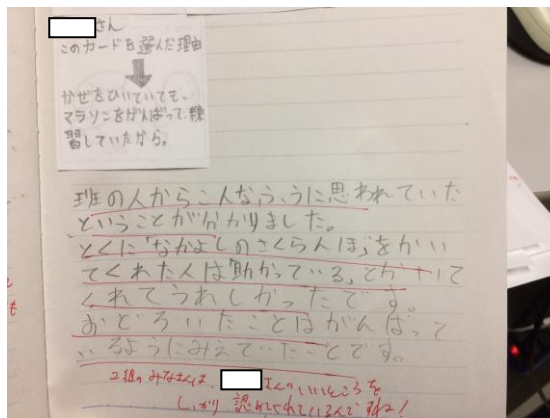 さん
このカードを選んだ理由
かぜをひいていても、
マラソンをがんばって、練
習していたから。
班の人からこんなふうに思われていた
ということが分かりました。
とくに「なかよしのさくらんぼ」をかい
てくれた人は「助かっている」とかいて
くれてうれしかったです。
おどろいたことはがんばって
いるようにみえていたことです。
2組のみなさんは、さんのいいところを
しっかり認めてくれているんですね!